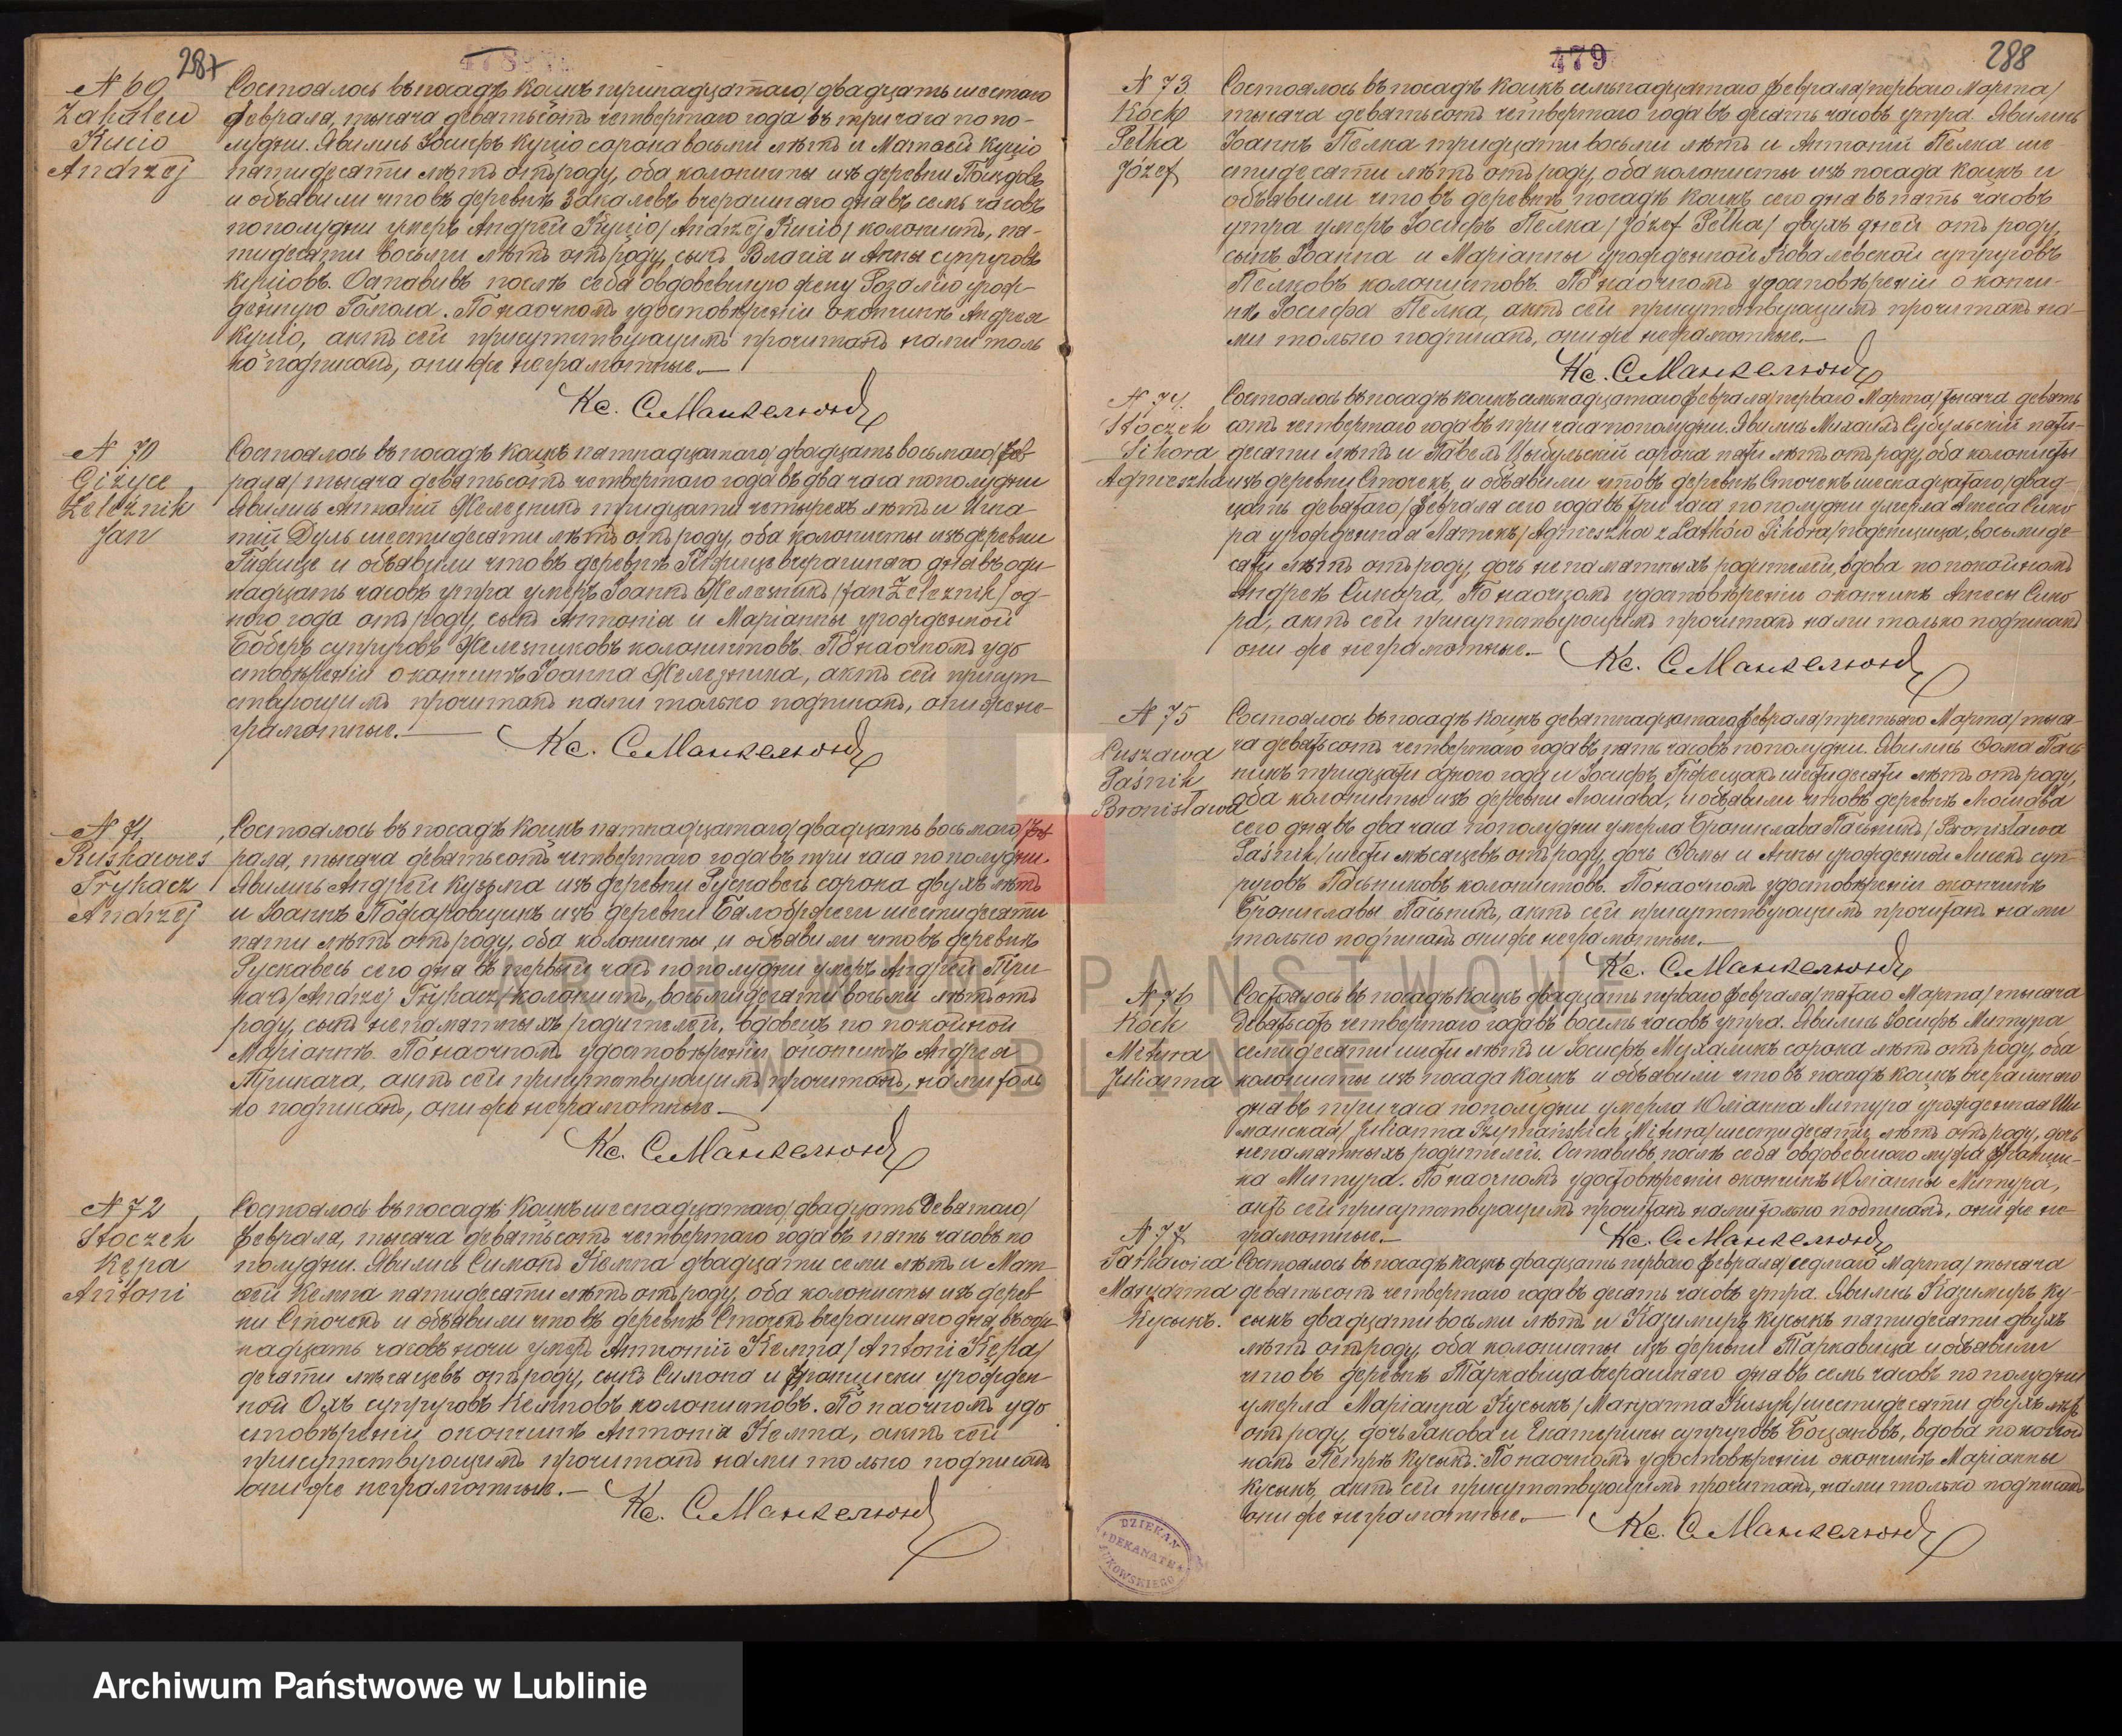 287
478
N 69
Zakalew
Kucio
Andrzej
Состоялось въ посадѣ Коцкъ тринадцатаго/двадцать шестаго
февраля, тысяча девятьсотъ четвертаго года въ три часа по по-
лудни. Явились Іосифъ Куціо сорока восьми лѣтъ и Матвей Куціо
пятидесяти лѣтъ отъ роду, оба колонисты изъ деревни
и объявили что въ деревнѣ Закалевъ вчерашняго дня въ семь часовъ
пополудни умеръ Андрей Куціо/Andrzej Kucio/колонистъ, пя-
тидесяти восьми лѣтъ отъ роду, сынъ Власія и Анны супруговъ
Куціовъ. Оставивъ послѣ себя овдовевшую жену Розалію урож-
денную Гомола. По наочномъ удостовѣреніи о кончинѣ Андрея
Куціо, актъ сей присутствующимъ прочитанъ нами толь
ко подписанъ, они же неграмотные.—
Кс. С Манкелюнд
N 70
Giżyce
Żeleźnik
Jan
Состоялось въ посадѣ Коцкъ пятнадцатаго/двадцать восьмаго/фев-
раля/тысяча девятьсотъ четвертаго года въ два часа пополудни
Явились Антоній Железникъ тридцати четырехъ лѣтъ и Игна-
тій Дуль шестидесяти лѣтъ отъ роду, оба колонисты изъ деревни
Гижице и объявили что въ деревнѣ Гижице вчерашняго дня въ оди-
надцать часовъ утра умеръ Іоаннъ Железникъ/Jan Żeleźnik/од-
ного года отъ роду, сынъ Антонія и Маріанны урожденной
Боберъ супруговъ Железниковъ колонистовъ. По наочномъ удо
стовѣреніи о кончинѣ Іоанна Железника, актъ сей присут-
ствующимъ прочитанъ нами только подписанъ, они же не-
грамотные.—
Кс. С Манкелюнд
N 71.
Ruskawies
Trykacz
Andrzej
Состоялось въ посадѣ Коцкъ пятнадцатаго/двадцать восьмаго/фев
раля, тысяча девятьсотъ четвертаго года въ три часа пополудни.
Явились Андрей Кузьма изъ деревни Рускавесь сорока двухъ лѣтъ
и Іоаннъ Пожаровщикъ изъ деревни Бялобржеги шестидесяти
пяти лѣтъ отъ роду, оба колонисты и объявили что въ деревнѣ
Рускавесь сего дня въ первый часъ пополудни умеръ Андрей Три-
качъ/Andrzej Trykacz/колонистъ, восьмидесяти восьми лѣтъ отъ
роду, сынъ непамятныхъ родителей, вдовецъ по покойной
Маріаннѣ. По наочномъ удостовѣреніи о кончинѣ Андрея
Трикача, актъ сей присутствующимъ прочитанъ, нами толь
ко подписанъ, они же неграмотные—
Кс. С Манкелюнд
N 72
Stoczek
Kępa
Antoni
Состоялось въ посадѣ Коцкъ шеснадцатаго/двадцать девятаго/
февраля, тысяча девятьсотъ четвертаго года въ пять часовъ по
полудни. Явились Симонъ Кемпа двадцати семи лѣтъ и Мат-
вей Кемпа пятидесяти лѣтъ отъ роду, оба колонисты изъ дерев
ни Сточекъ и объявили что въ деревнѣ Сточекъ вчерашняго дня въ оди-
надцать часовъ ночи умеръ Антоній Кемпа/Antoni Kępa/
десяти мѣсяцевъ отъ роду, сынъ Симона и Франциски урожден-
ной Охъ супруговъ Кемповъ колонистовъ. По наочномъ удо
стовѣреніи о кончинѣ Антонія Кемпа, актъ сей
присутствующимъ прочитанъ нами только подписанъ
они же неграмотные.—
Кс. С Манкелюнд
479
288
N 73.
Kock
Pełka
Józef
Состоялось въ посадѣ Коцкъ семьнадцатаго февраля/перваго Марта/
тысяча девятьсотъ четвертаго года въ десять часовъ утра. Явились
Іоаннъ Пелка тридцати восьми лѣтъ и Антоній Пелка ше-
стидесяти лѣтъ отъ роду, оба колонисты изъ посада Коцкъ и
объявили что въ деревнѣ посадѣ Коцкъ сего дня въ пять часовъ
утра умеръ Іосифъ Пелка/Józef Pełka/двухъ дней отъ роду,
сынъ Іоанна и Маріанны урожденной Ковалевской супруговъ
Пелковъ колонистовъ. По наочномъ удостовѣреніи о кончи-
нѣ Іосифа Пелка, актъ сей присутствующимъ прочитанъ на-
ми только подписанъ, они же неграмотные.—
Кс. С Манкелюнд
N 74.
Stoczek
Sikora
Agnieszka
Состоялось въ посадѣ Коцкъ семьнадцатаго февраля/перваго Марта/тысяча девять
сотъ четвертаго года въ три часа пополудни. Явились Михаилъ Судульскій пяти-
десяти лѣтъ и Павелъ Цыбульскій сорока пяти лѣтъ отъ роду, оба колонисты
изъ деревни Сточекъ, и объявили что въ деревнѣ Сточекъ шеснадцатаго/двад-
цать девятаго/февраля сего года въ три часа пополудни умерла Агнеса Сико
ра урожденная Латекъ/Agnieszka z Latków Sikora/поденщица, восьмиде-
сяти лѣтъ отъ роду, дочь непамятныхъ родителей, вдова по покойномъ
Андреѣ Сикора. По наочномъ удостовѣреніи о кончинѣ Агнесы Сико
ра, актъ сей присутствующимъ прочитанъ нами только подписанъ
они же неграмотные.—
Кс. С Манкелюнд
N 75
Luszawa
Paśnik
Bronisława
Состоялось въ посадѣ Коцкъ девятнадцатаго февраля/третьяго Марта/тыся-
ча девятьсотъ четвертаго года въ пять часовъ пополудни. Явились Ѳома Пась
никъ тридцати одного года и Іосифъ Гржещакъ шестидесяти лѣтъ отъ роду,
оба колонисты изъ деревни Люшава, и объявили что въ деревнѣ Люшава
сего дня въ два часа пополудни умерла Брониславa Пасьникъ/Bronisława
Paśnik/шести мѣсяцевъ отъ роду, дочь Ѳомы и Анны урожденной Лисекъ суп-
руговъ Пасьниковъ колонистовъ. По наочномъ удостовѣреніи о кончинѣ
Брониславы Пасьникъ, актъ сей присутствующимъ прочитанъ нами
только подписанъ они же неграмотные.—
Кс. С Манкелюнд
N 76
Kock
Mitura
Julianna
Состоялось въ посадѣ Коцкъ двадцать перваго февраля/пятаго Марта/тысяча
девятьсотъ четвертаго года въ восемь часовъ утра. Явились Іосифъ Митура
семидесяти шести лѣтъ и Іосифъ Михаликъ сорока лѣтъ отъ роду, оба
колонисты изъ посада Коцкъ и объявили что въ посадѣ Коцкъ вчерашняго
дня въ три часа пополудни умерла Юліанна Митура урожденная Ши
манская/Julianna Szymańskich Mitura/шестидесяти лѣтъ отъ роду, дочь
непамятныхъ родителей. Оставивъ послѣ себя овдовевшаго мужа Франци-
ка Митура. По наочномъ удостовѣреніи о кончинѣ Юліанны Митура,
актъ сей присутствующимъ прочитанъ нами только подписанъ, они же не-
грамотные.—
Кс. С Манкелюнд
N 77
Tarkawica
Maryanna
Кусыкъ.
Состоялось въ посадѣ Коцкъ двадцать перваго февраля/седмаго Марта/тысяча
девятьсотъ четвертаго года въ десять часовъ утра. Явились Казимиръ Ку-
сыкъ двадцати восьми лѣтъ и Казимиръ Кусыкъ пятидесяти двухъ
лѣтъ отъ роду, оба колонисты изъ деревни Таркавица и объявили
что въ деревнѣ Таркавица вчерашняго дня въ семь часовъ пополудни
умерла Маріанна Кусыкъ/Maryanna Kusyk/шестидесяти двухъ лѣтъ
отъ роду, дочь Якова и Екатерины супруговъ Боцяновъ, вдова по покой
номъ Петрѣ Кусыкъ. По наочномъ удостовѣреніи о кончинѣ Маріанны
Кусыкъ, актъ сей присутствующимъ прочитанъ, нами только подписанъ
они же неграмотные.—
Кс. С Манкелюнд
DZIEKAN
DEKANATU
ŁUKOWSKIEGO
ARCHIWUM PAŃSTWOWE
W LUBLINIE
Archiwum Państwowe w Lublinie